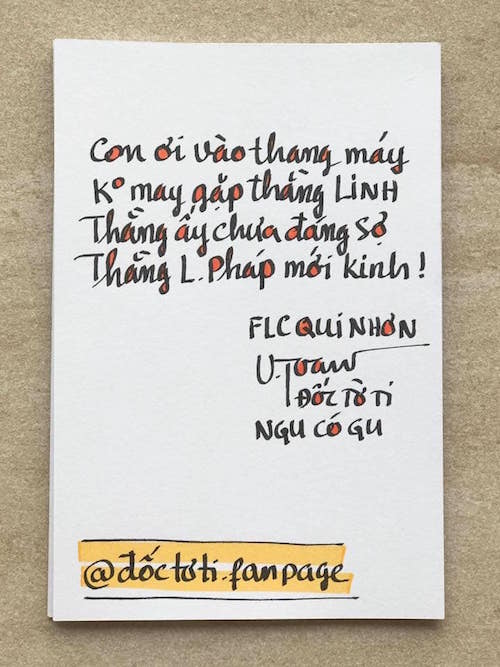 Con ơi vào thang máy
Ko may gặp thằng LINH
Thằng ấy chưa đáng sợ
Thằng L.Pháp mới kinh!
FLC QUI NHƠN
U.Toan
ĐỐC TỜ TI
NGU CÓ GU
@đốctơti.fanpage